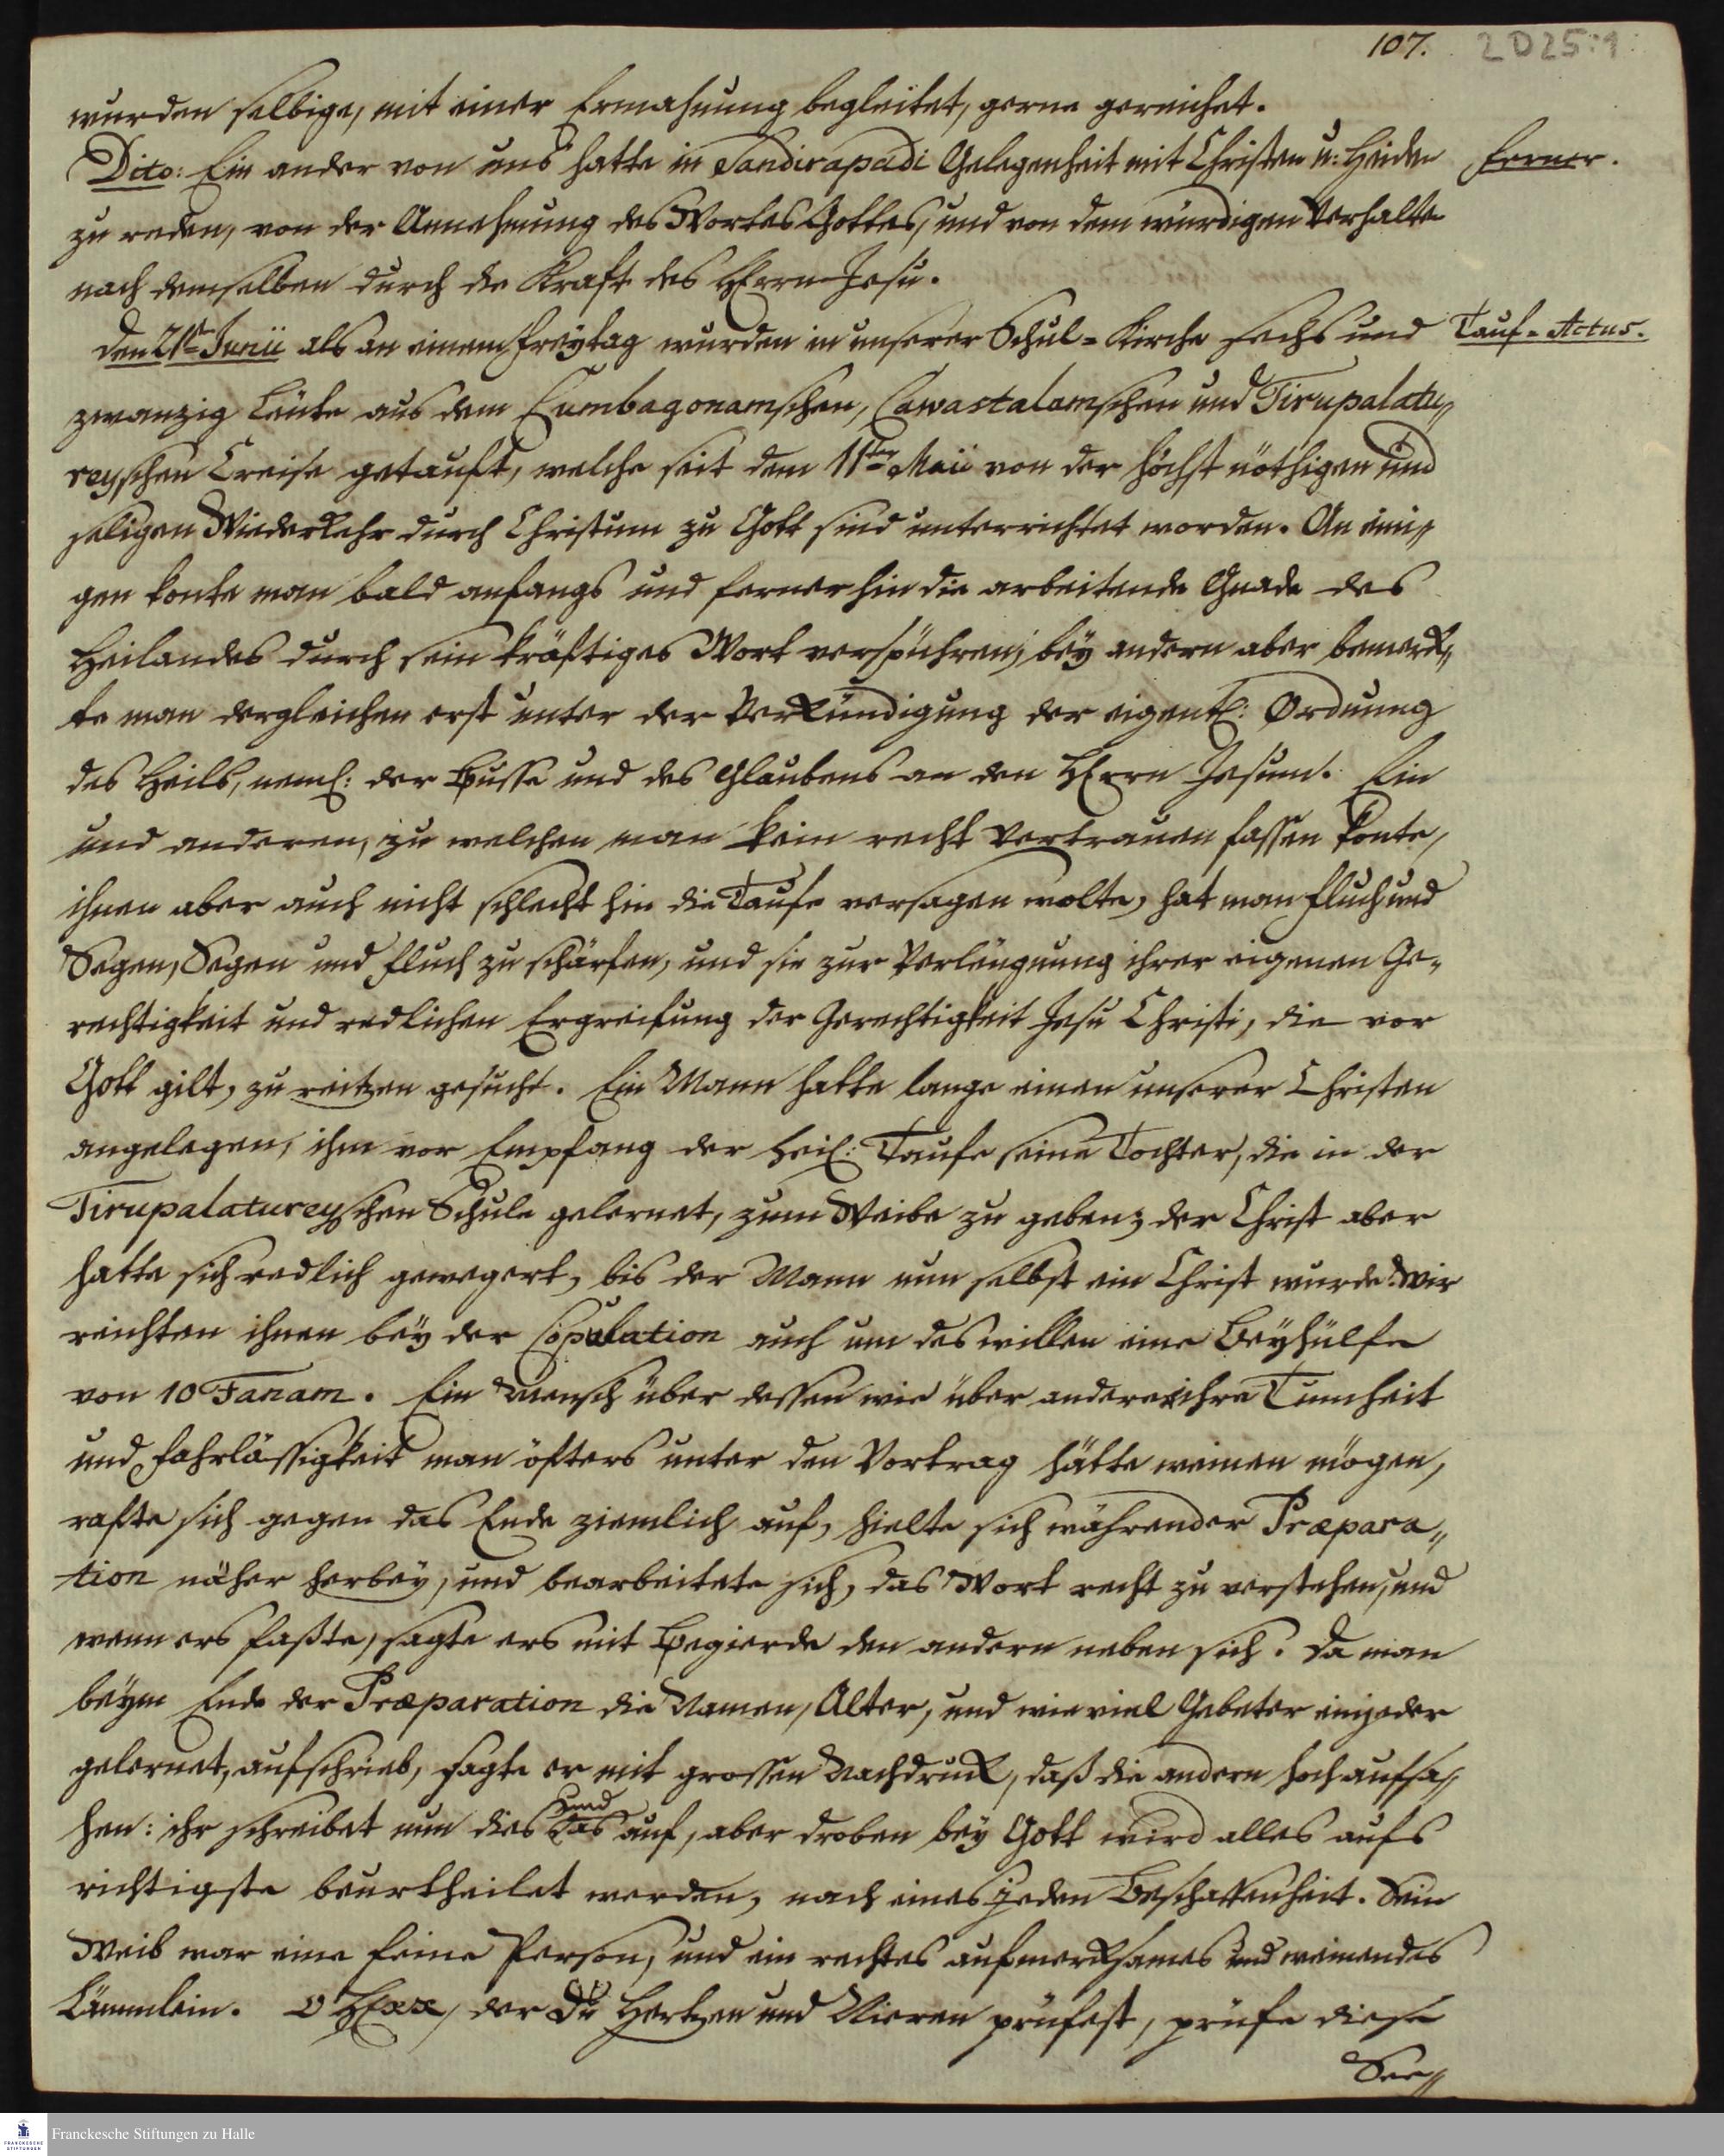 107. 2D25:1
wurden selbige, mit einer Ermahnung begleitet, gerne gereichet.
Dito: Ein ander von uns hatte in Sandirapadi Gelegenheit mit Christen u: Heiden
ferner.
zu reden, von der Annehmung des Wortes Gottes, und von dem würdigen Verhalte
nach demselben durch die Kraft des HErrn Jesu.
Den 21st Junii als an einem Freytag wurden in unserer Schul-Kirche sechs und
Tauf-Actus.
zwanzig Leute aus dem Cumbagonamschen, Cawastalamschen und Tirupalatu-
reyschen Creise getauft, welche seit dem 11ten Maii von der höchst nöthigen und
seligen Wiederkehr durch Christum zu Gott sind unterrichtet worden. An eini-
gen konte man bald anfangs und fernerhin die arbeitende Gnade des
Heilandes durch sein kräftiges Wort verspühren; bey andern aber bemerk-
te man dergleichen erst unter der Verkündigung der eigentl: Ordnung
des Heils, neml: der Busse und des Glaubens an den HErrn Jesum. Ein
und anderen, zu welchen man kein recht Vertrauen fassen konte,
ihnen aber auch nicht schlecht hin die Taufe versagen wolte, hat man Fluch und
Segen, Segen und Fluch zu schärfen, und sie zur Verleugnung ihrer eigenen Ge-
rechtigkeit und redlichen Ergreifung der Gerechtigkeit Jesu Christi, die vor
Gott gilt, zu reitzen gesucht. Ein Mann hatte lange einen unserer Christen
angelegen, ihm vor Empfang der heil: Taufe seine Tochter, die in der
Tirupalatureyschen Schule gelernet, zum Weibe zu geben; der Christ aber
hatte sich redlich gewegert, bis der Mann nun selbst ein Christ wurde. Wir
reichten ihnen bey der Copulation auch um deswillen eine Beyhülfe
von 10 Fanam. Ein Mensch über dessen wie über anderer ihre Tumheit
und Fahrlässigkeit man öfters unter den Vortrag hätte weinen mögen,
rafte sich gegen das Ende ziemlich auf, hielte sich währender Præpara-
tion näher herbey, und bearbeitete sich, das Wort recht zu verstehen, und
wenn ers faßte, sagte ers mit Begierde den andern neben sich. Da man
beym Ende der Præparation die Namen, Alter, und wie viel Gebeter ein jeder
gelernet, aufschrieb, sagte er mit grossen Nachdruck, daß die andern hoch aufsa-
hen: ihr schreibet nun dies und das auf, aber droben bey Gott wird alles aufs
richtigste beurtheilet werden, nach eines jeden Beschaffenheit. Sein
Weib war eine feine Person, und ein rechtes aufmerksames und weinendes
Lämmlein. O HErr, der Du Hertzen und Nieren prüfest, prüfe diese
See-
Franckesche Stiftungen zu Halle
FRANCKESCHE
STIFTUNGEN